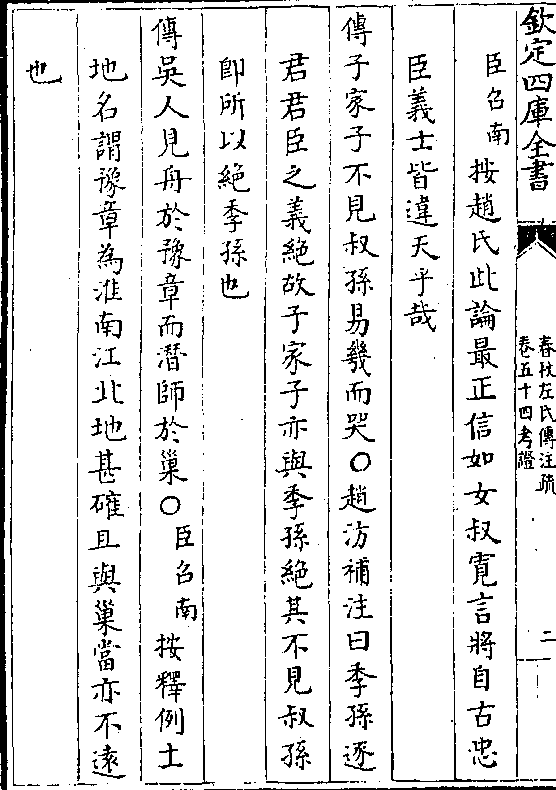 欽定四庫全書
春秋左氏傳注疏
卷五十四考證
二
臣召南按趙氏此論最正信如女叔寛言將自古忠
臣義士皆違天乎哉
傳子家子不見叔孫易幾而哭○趙汸補注曰季孫逐
君君臣之義絶故子家子亦與季孫絶其不見叔孫
即所以絶季孫也
傳吳人見舟於豫章而潛師於巢○臣召南按釋例土
地名謂豫章為淮南江北地甚確且與巢當亦不遠
也